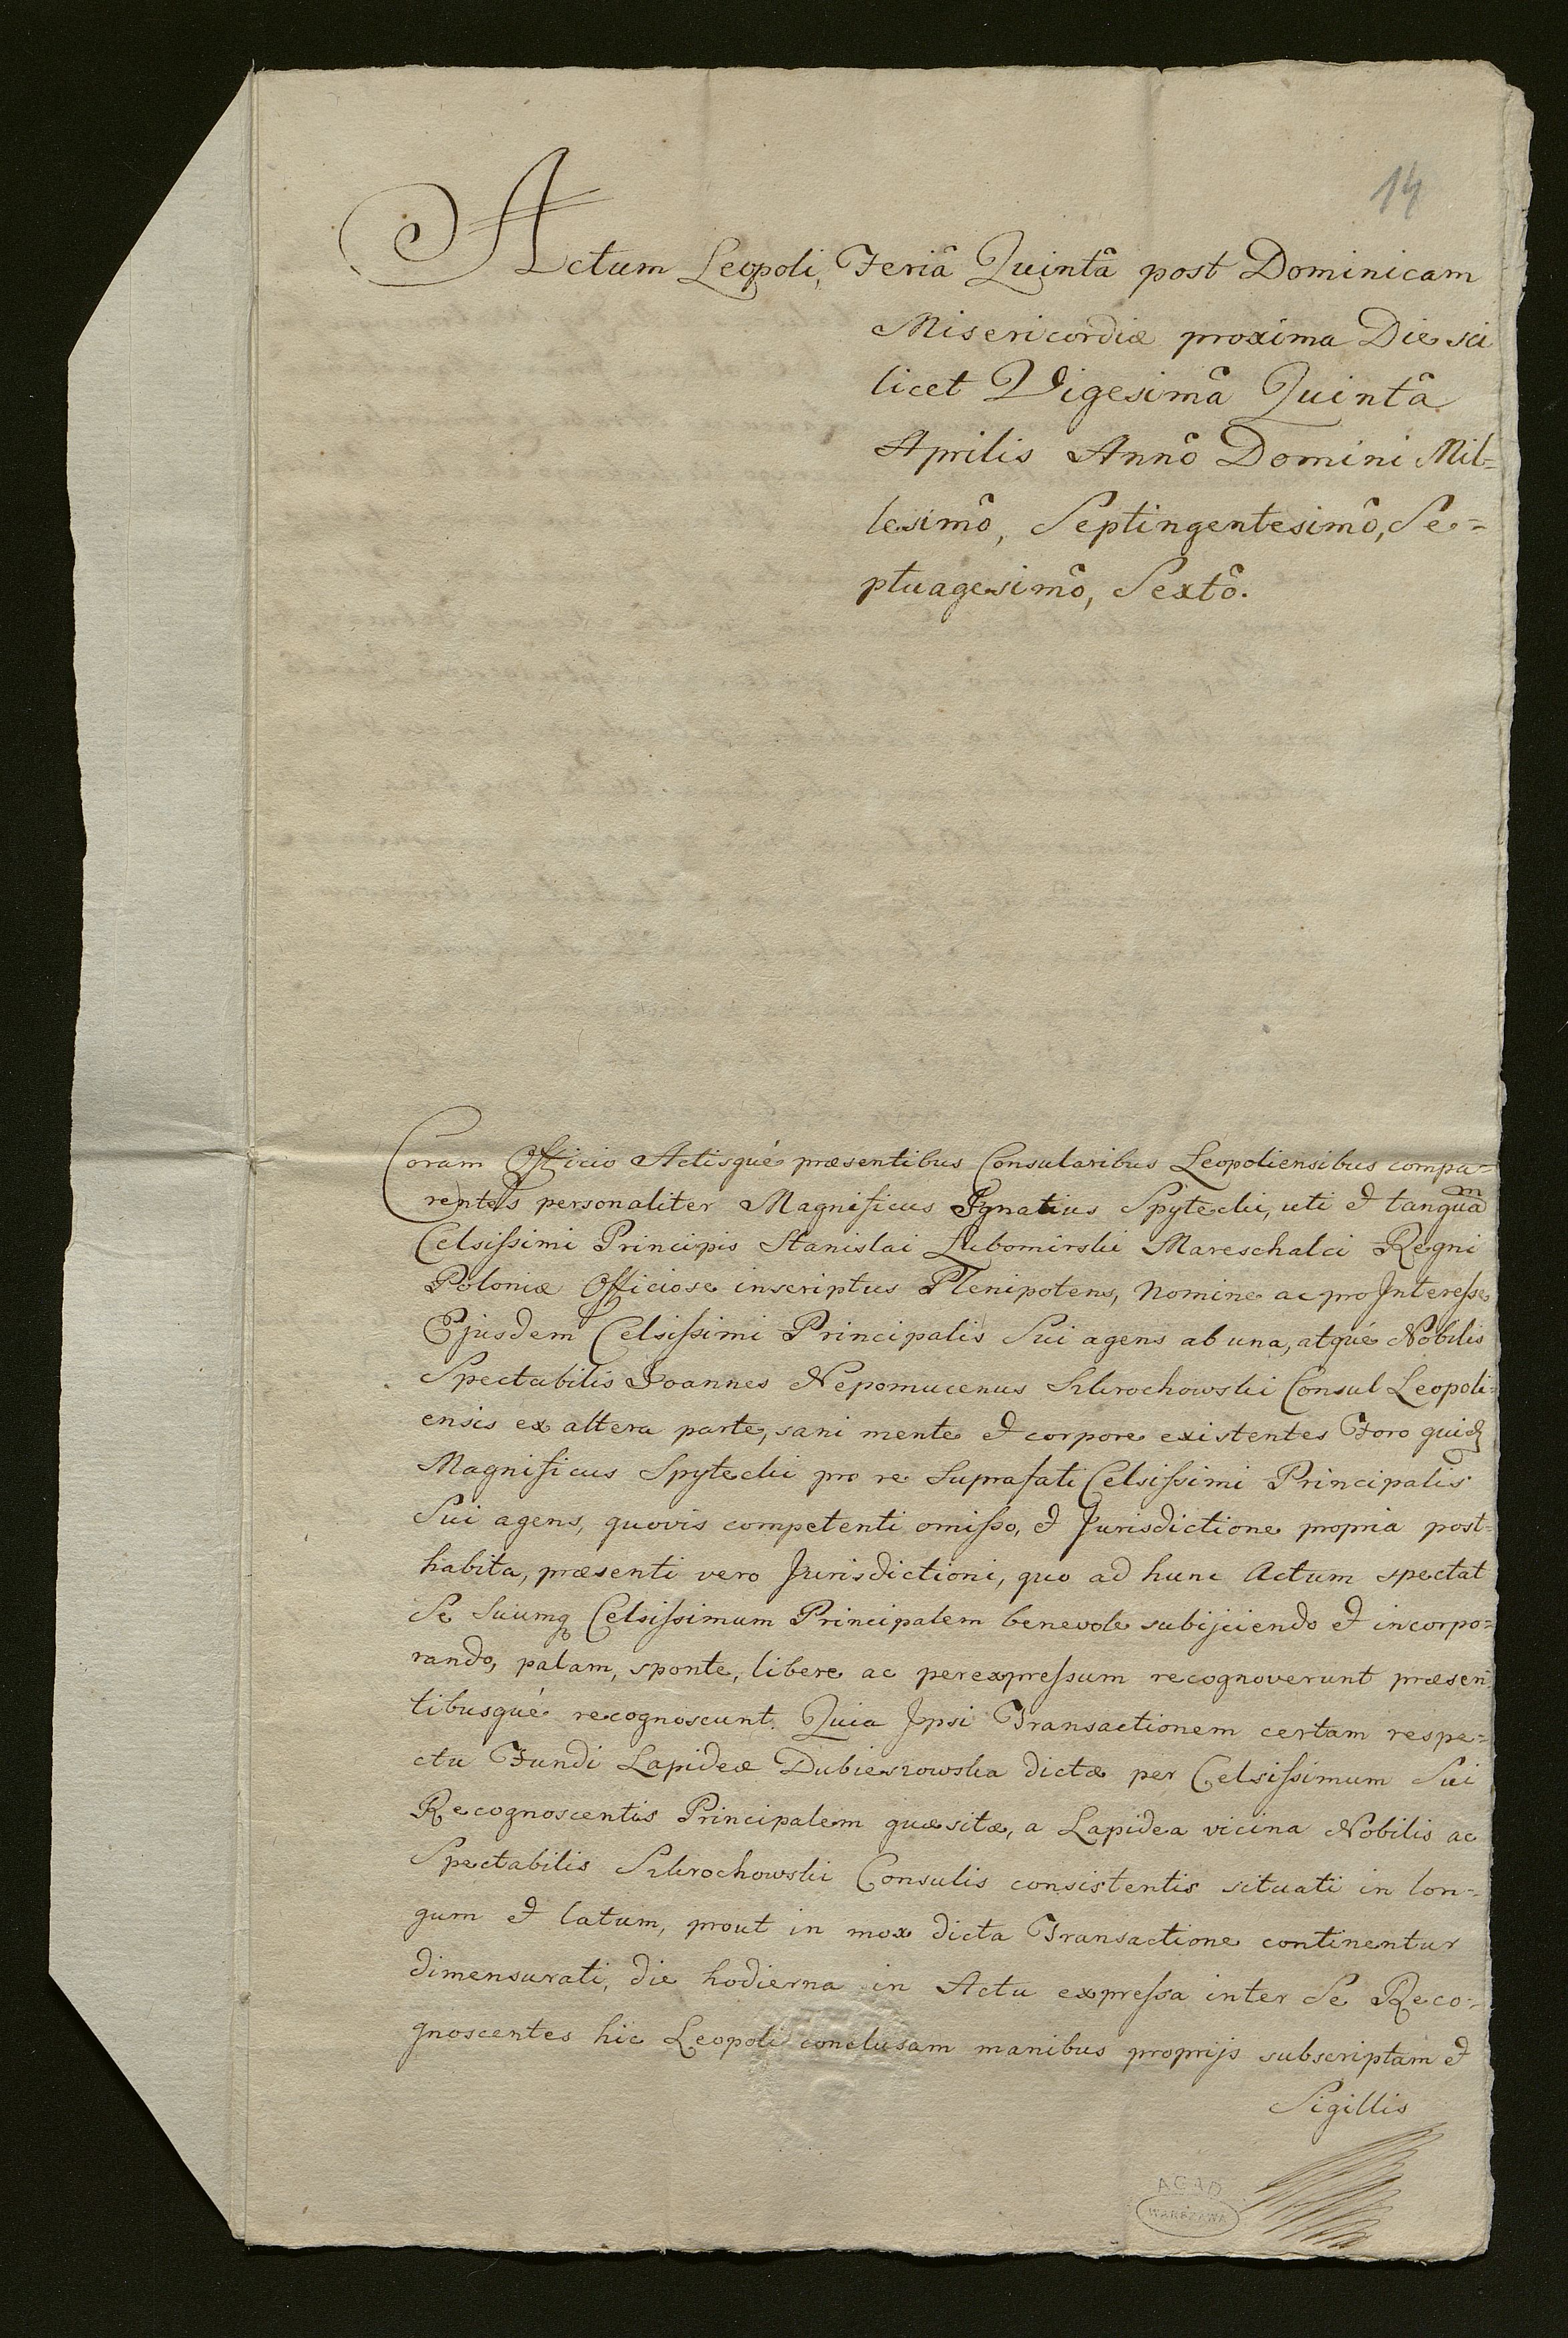 14
Actum Leopoli, Feriâ Quintâ post Dominicam
Misericordiæ proxima Die sci
licet Vigesimâ Quintâ
Aprilis Annô Domini Mil=
lesimô, Septingentesimô, Se=
ptuagesimô, Sextô.
Coram Officio Actisqué præsentibus Consularibus Leopoliensibus compa=
rentes personaliter Magnificus Ignatius Spytecki, uti et tanquam
Celsißimi Principis Stanislai Lubomirski Mareschalci Regni
Poloniæ Officiose inscriptus Plenipotens, Nomine ac pro Intereße
Ejusdem Celsißimi Principalis Sui agens ab una, atqué Nobilis
Spectabilis Joannes Nepomucenus Szkrochowski Consul Leopoli=
ensis ex altera parte, sani mente et corpore existentes Foro quidem
Magnificus Spytecki pro re Suprafati Celsißimi Principalis
Sui agens, quovis competenti omißo, et Jurisdictione propria post=
habita, præsenti vero Jurisdictioni, quo ad hunc Actum spectat
Se Suumq Celsißimum Principalem benevole subijciendo et incorpo=
rando, palam, sponte, libere ac perexpreßum recognoverunt præsen=
tibusqué recognoscunt. Quia Ipsi Transactionem certam respe=
ctu Fundi Lapideæ Dubieszowska dictæ per Celsißimum Sui
Recognoscentis Principalem quæsitæ, a Lapidea vicina Nobilis ac
Spectabilis Szkrochowski Consulis consistentis situati in lon=
gum et latum, prout in mox dicta Transactione continentur
dimensurati, die hodierna in Actu expreßa inter Se Reco=
gnoscentes hic Leopoli conclusam manibus proprijs subscriptam et
Sigillis
AGAD
WARSZAWA